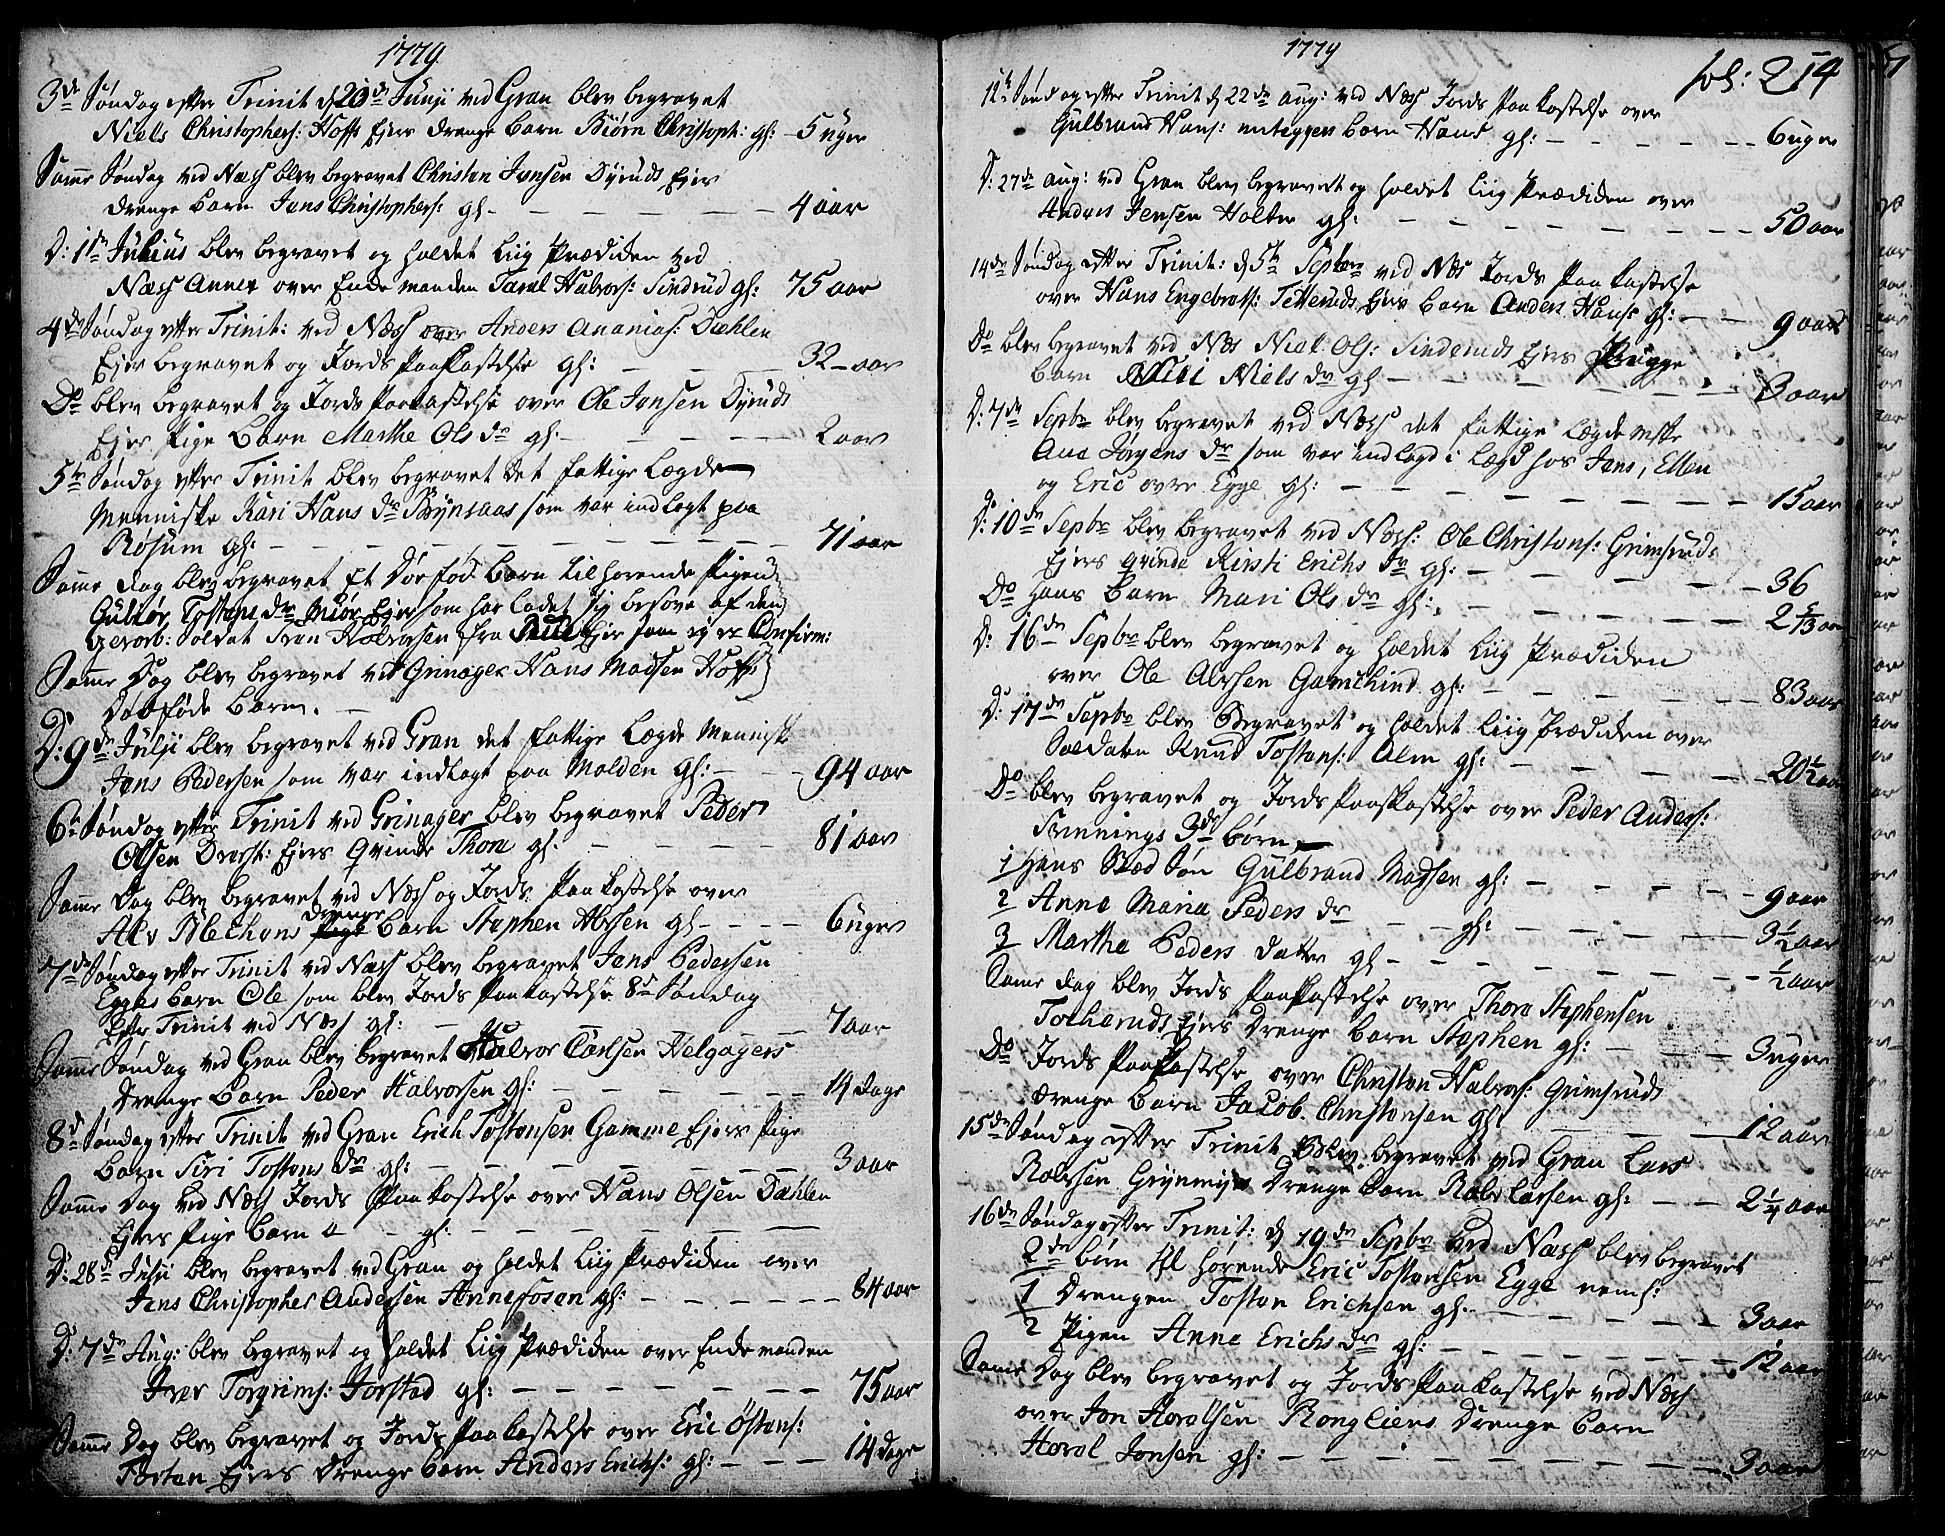 1779
3de Søndag efter Trinit d 20de Junji ved Gran blev begravet
Niels Christophers: Hoffs Ejers drenge barn Biørn Christoph: gl: 5 uger
Samme Søndag ved Næss blev begravet Christen Jensen Dyruds Ejers
drenge barn Jens Christophers: gl - - - - - - 4 aar
D: 1te Julius blev begravet og holdet Liig Prædiken ved
Næss Annex over Ende manden Taral Halvors: Sindrud gl: 75 aar
4de Søndag efter Trinit: ved Næss over Anders Ananias: Dæhlen
Ejer begravet og Jords Paakastelse gl: - - - 32 - aar
Do blev begravet og Jords Paakastelse over Ole Jensen Dyruds
Ejers Pige barn Marthe Ols dr gl: - - - - 2 aar
5te Søndag efter Trinit blev begravet det fattige Lægde
Menniske Kari Hans dr Bynsaas som var indlagt paa
Røsum gl: - - - - - - - - 71 aar
Samme dag blev begravet Et Død fød barn tilhørende Pigen
Gubiør Tostens dr Miør Ejer som har ladet sig besove af den
Gevorb: Soldat Iver Halvorsen fra Ejer som ej er Confirm:
Samme Dag blev begravet ved Grinager Hans Madsen Hoffs
Dødføde barn. -
D: 9de Julji blev begravet ved Gran det fattige Lægde Menniske
Jens Pedersen som var indlagt paa Molden gl: - - - 94 aar
6te Søndag efter Trinit ved Grinager blev begravet Peder
Olsen Dverst: Ejers Qvinde Thore gl: - - - - 81 aar
Samme Dag blev begravet ved Næss og Jords Paakastelse over
Alv Blechens drenge barn Stephen Alvsen gl - - - - 6 uger
7de Søndag efter Trinit ved Næss blev begravet Jens Pedersen
Egges barn Ole som blev Jords Paakastelse 8de Søndag
Efter Trinit ved Næss gl: - - - - - 7 aar
Samme Søndag ved Gran blev begravet Halvor Carlsen Helgagers
Drenge barn Peder Halvorsen gl: - - - - - 14 Dage
8de Søndag efter Trinit ved Gran Erich Tostensen Gamme Ejers Pige
barn Siri Tostens dr gl: - - - - - - - 3 aar
Samme Dag ved Næss Jords Paakastelse over Hans Olsen Dæhlen
Ejers Pige barn - - gl: - - - - - -
D: 28de Julji blev begravet ved Gran og holdet Liig Prædiken over
Jens Christopher Andersen Annexfosen gl: - - - - - 84 aar
D: 7de Aug: blev begravet og holdet Liig Prædiken over Ende manden
Iver Torgrims: Jorstad gl: - - - - - - - 75 aar
Samme Dag blev begravet og Jords Paakastelse over Eric Østens:
Torten Ejers drenge barn Anders Erichs: gl: - - - 14 dage
1779
fol: 214
12te Søndag efter Trinit d 22de Aug: ved Næss Jords Paakastelse over
Gulbrand Hans: barn Hans gl: - - - - - 6 uger
D: 27de Aug: ved Gran blev begravet og holdet Liig Prædiken over
Anders Jensen Holter gl: - - - - - - - 50 aar
14de Søndag efter Trinit: d 5te Septbr ved Næs Jords Paakastelse
over Hans Engebretss: Tetteruds Ejers barn Anders Hanss gl: - - 9 aar
Do blev begravet ved Næs Niels Ols: Sinderuds Ejers Pige
barn Siri Niels dr gl - - - - - - - 3 aar
D: 7de Septbr blev begravet ved Næss det fattige Lægdemske
Ane Jørgens dr som var indlagd i Lægd hos Jens, Ellen
og Eric øvre Egge gl: - - - - - - - - 15 aar
D: 10de Septbr blev begravet ved Næss: Ole Christens: Grimsruds
Ejers qvinde Kirsti Erichs dr gl: - - - - - 36
Do Hans Barn Mari Ols dr gl: - - - - - 2 5/13 aar
D: 16de Septbr blev begravet og holdet Liig Prædiken
over Ole Alvsen Gamehind gl: - - - - - 83 aar
D: 17de Septbr blev Begravet og holdet Liig Prædiken over
Soldaten Knud Tostens: Alm gl: - - - - - 20 1/2 aar
Do blev begravet og Jords Paakastelse over Peder Anders:
Sønnings 3de børn
1 Hans Sted Søn Gulbrand Madsen gl: - - - - 9 aar
2 Anne Maria Peders dr - - - gl: - - - - 3 1/2 aar
3 Marthe Peders datter gl - - - - - - - - 1/2 aar
Samme dag blev Jords Paakastelse over Thore Stephensen
Torheruds Ejers Drenge barn Stephen gl: - - - 3 uger
Do Jords Paakastelse over Christen Halvors: Grimsruds
drenge barn Jacob Christensen gl: - - - - 12 aar
15de Søndag efter Trinit Blev begravet ved Gran Lars
Rolvsen Grynmyr Drenge barn Rolv Larsen gl: - - 2 1/4 aar
16de Søndag efter Trinit: d 19de Septbr ved Næss blev begravet
2de børn til hørende Eric Tostensen Egge neml:
1 Drengen Tosten Erichsen gl: - - - - - - 3 aar
2 Pigen Anne Erichs dr gl: - - - - - - - 12 aar
Samme Dag blev begravet og Jords Paakastelse ved Næss
over Jon Haralsen Rongliens Drenge barn
Haral Jonsen gl: - - - - - - - - - 3 aar